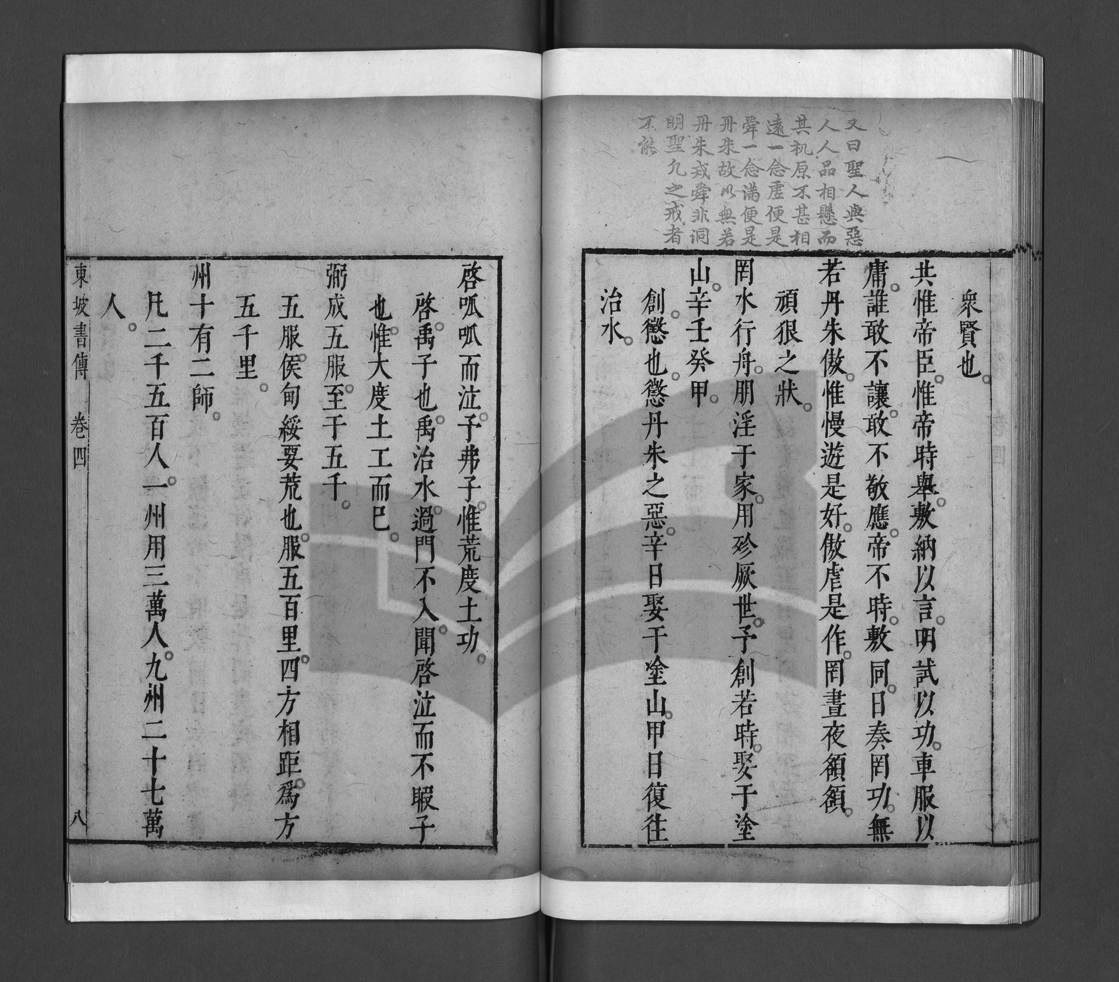 又曰聖人與惡
人人品相懸而
其机原不甚相
遠一念虛便是
舜一念滿便是
丹朱故以無若
丹朱戒舜非洞
明聖凡之戒者
不能
衆賢也。
共惟帝臣。惟帝時舉。敷納以言。明試以功。車服以
庸。誰敢不讓。敢不敬應。帝不時敷。同日奏罔功。無
若丹朱傲。惟慢遊是好。傲虐是作。罔晝夜頟頟。
頑狠之狀。
罔水行舟。朋淫于家。用殄厥世。予創若時。娶于塗
山。辛壬癸甲。
創。懲也。懲丹朱之惡。辛日娶于塗山。甲日復往
治水。
啓呱呱而泣。予弗子。惟荒度土功。
啓。禹子也。禹治水。過門不入。聞啓泣而不暇子
也。惟大度土工而已。
弼成五服。至于五千。
五服。侯甸綏要荒也。服五百里。四方相距。爲方
五千里。
州十有二師。
凡二千五百人。一州用三萬人。九州二十七萬
人。
東坡書傳 卷四 八